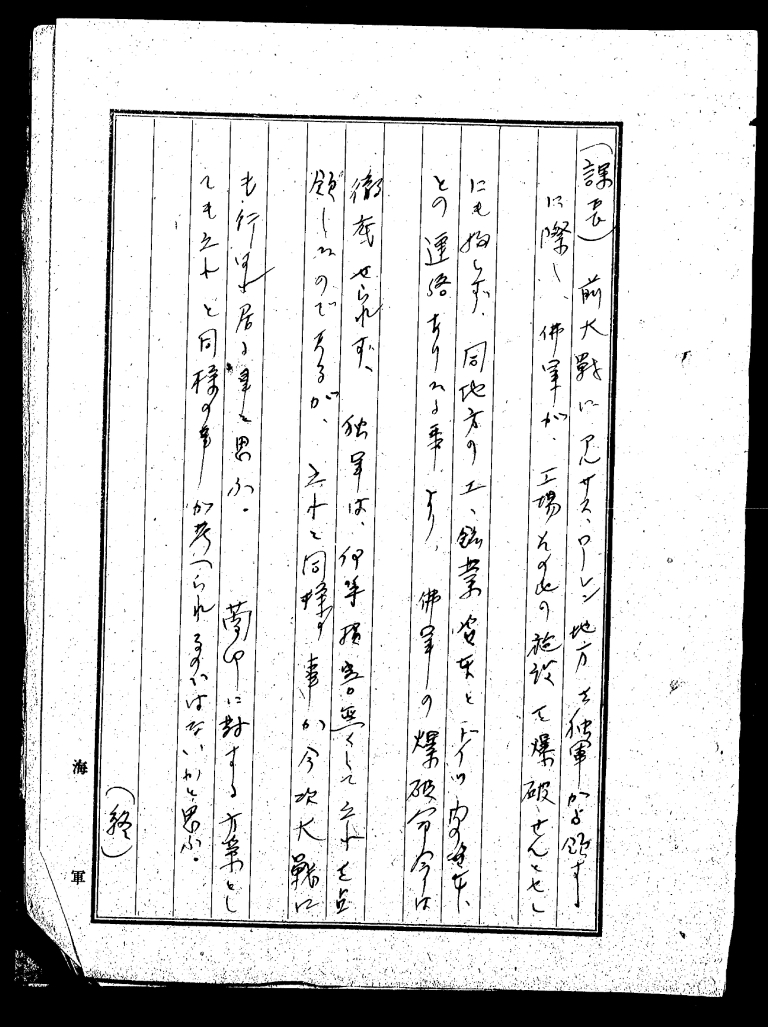 (課長) 前大戰にアルサス、ローレン地方を独軍が占領する
に際し、佛軍が、工場其の他の施設を爆破せんとせし
にも拘らず、同地方の工、鉱業資本とドイツ内の資本、
との連絡ありたる事より、佛軍の爆破命令は
徹底せられず、独軍は、何等損害無くして之れを占
領したのであるが、之れと同様の事が今次大戰に
も行はれ居る事と思ふ。 蘭印に対する方策とし
ても之れと同様の事が考へられるのではないかと思ふ。
(終)
海軍